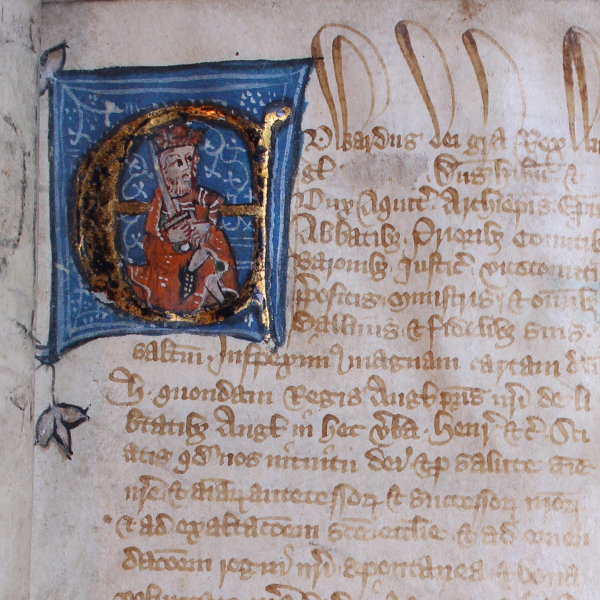 Edwardus dei gr̄a Rex
Dn̄s hib̄n̄ &
Dux Aquit̄. Archiep̄is Ep̄i
Abbatib; Priorib; Comitib
Baronib; Justic̄. vicecomiti
p̄positis ministris & om̄ib
Ballivis & fidelib; suis.
salt̄m Inspexim̄ magnam cartam dn̄i
H. quondam Regis Angl̄ p̄ris nr̄i de li
b̄tatib; Angl̄ in hec v̄ba. Henr̄ &c̄ Sci
atis qd̄ nos intuitu dei & p̄ salute aīe
nr̄e & aīar̄ antecessor̄ & successor̄ nr̄or̄
& ad exaltac̄oem sc̄e eccl̄ie & ad emen
dac̄oem regni nr̄i spontanea & bona
voluntate